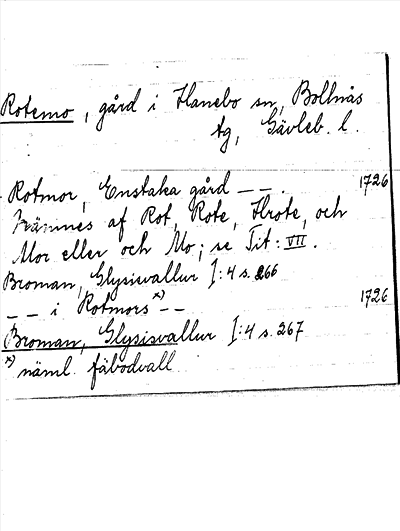 Rotemo, gård i Hanebo sn, Bollnäs
tg, Gävleb. l.
Rotmor, Enstaka gård — —. 1726
Nämnes af Rot, Rote, Hrote, och
Mor eller och Mo; se Tit: VII.
Broman, Glysisvallur I:4 s. 266
— — i Rotmors x) — — 1726
Broman, Glysisvallur I:4 s. 267
x) näml. fäbodvall